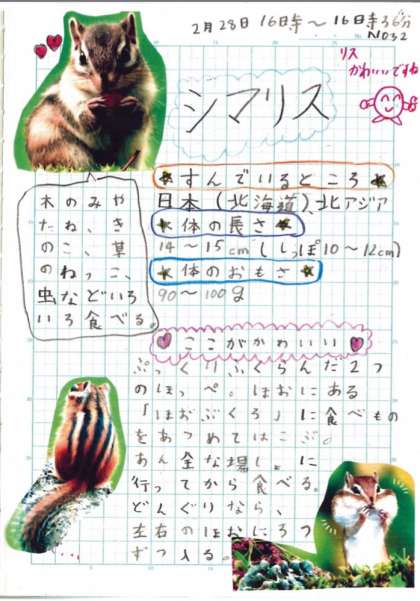 2月28日 16日寺〜16日寺36分
NO32
リス
かわいいですね
シマリス
★すんでいるところ★
日本(北海道)、北アジア
★体の長さ★
14〜15cm(しっぽ10〜12cm)
★体のおもさ★
90〜100g
木のみや
たね、き
のこ、草
のねっこ、
虫などいろ
いろ食べる。
ここがかわいい
ぷっくりふくらんだ2つ
のほっぺ。ほおにある
「ほおぶくろ」に食べもの
をあつめてはこぶ。
あん全な場しょに
行ってから食べる。
どんぐりなら、
左右のほおに3つ
ずつ入る。